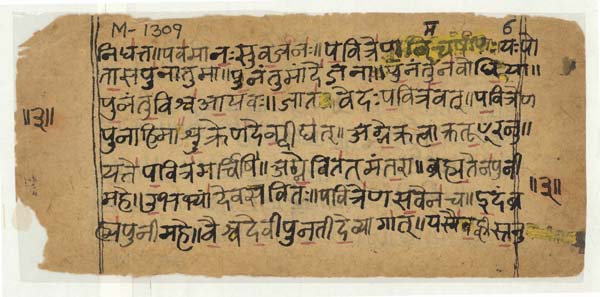 M-1309
म
6
निधत्त॥पवमानः सुवर्जनः॥पवित्रेण विचर्षणिः॥यः पो
तासपुनातुमा॥पुनंतुमादेवजनाः॥पुनंतुमनवोधिया॥
पुनंतुविश्वआयवः॥जातवेदः पवित्रवत्॥पवित्रेण
पुनाहिमाशुक्रेणदेवदीद्यत्॥अग्नेक्रत्वाक्रतू७रनु॥
यत्तेपवित्रमर्चिषि॥अग्नेविततमंतरा॥ब्रह्मतेनपुनी
महे॥उभाभ्यांदेवसवितः॥पवित्रेणसवेनच॥इदंब्र
ह्मपुनीमहे॥वैश्वदेवीपुनतीदेव्यागात्॥यस्यै
॥३॥
॥३॥